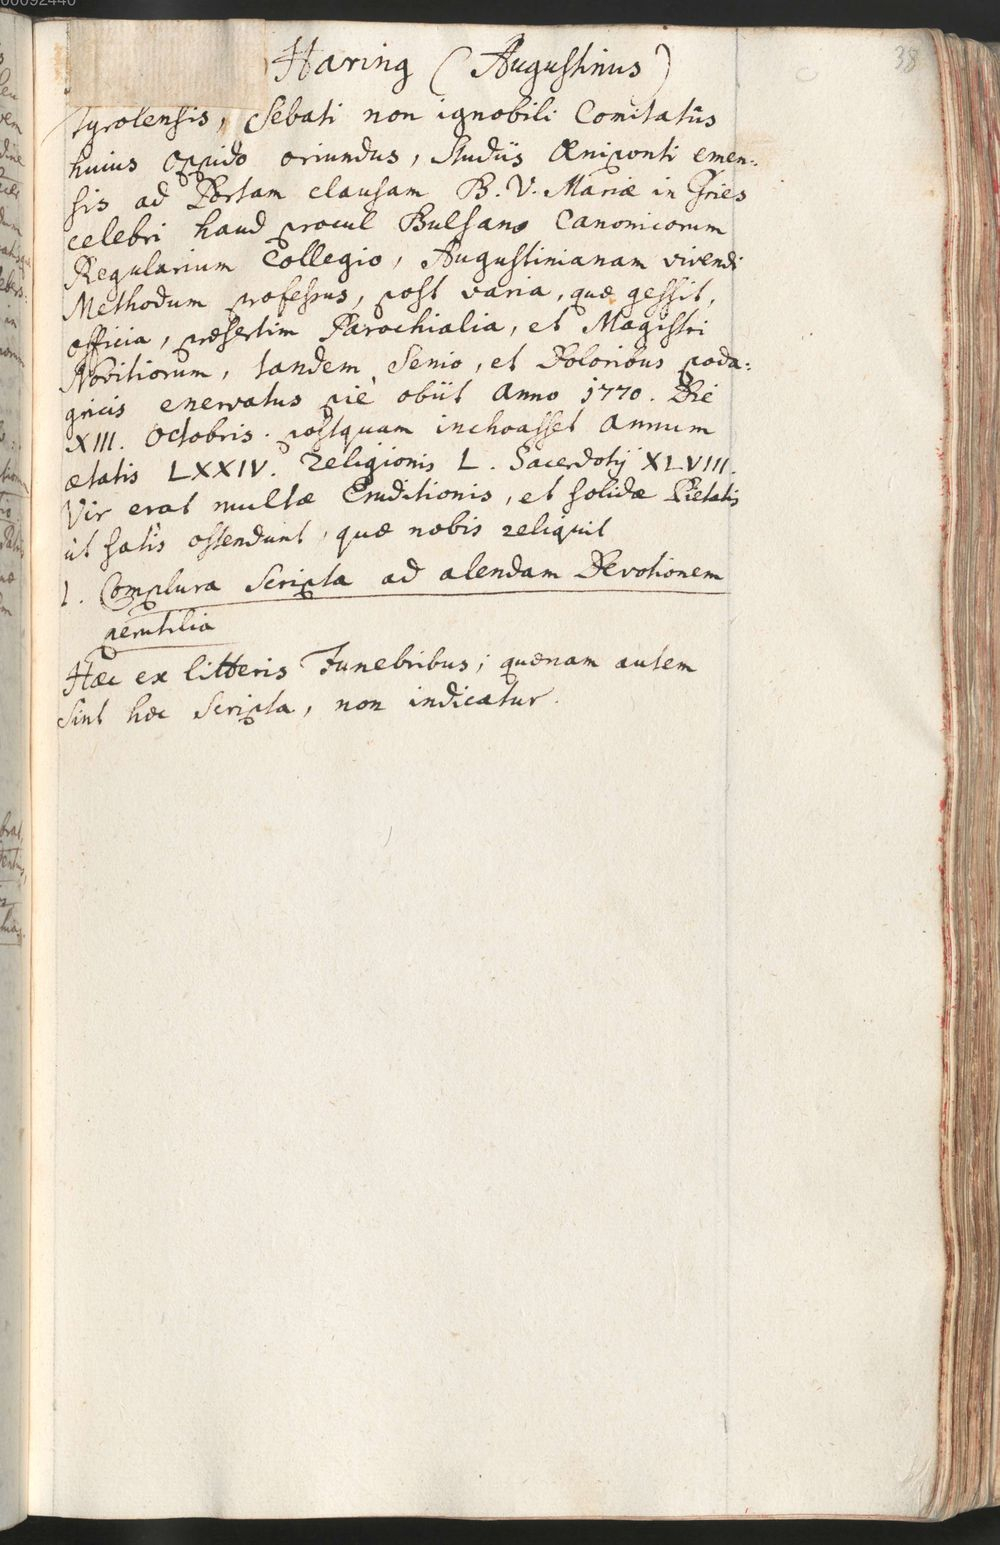 38
Haring (Augustinus)
Tyrolensis, Sebati non ignobili Comitatûs
huius Oppido oriundus, Studiis Œniponti emen-
sis ad Portam clausam B. V. Mariæ in Gries
celebri haud procul Bulsano Canonicorum
Regularium Collegio, Augustinianam vivendi
Methodum professus, post varia, quæ gessit,
officia, præsertim Parochialia, et Magistri
Novitiorum, tandem Senio, et Doloribus poda-
gricis enervatus piè obiit Anno 1770. Die
XIII. Octobris. postquam inchoasset Annum
ætatis LXXIV. Religionis L. Sacerdotij XLVIII.
Vir erat multæ Eruditionis, et solidæ Pietatis
ut satis ostendunt, quæ nobis reliquit
1. Complura Scripta ad alendam Devotionem
perutilia
Hæc ex litteris Funebribus; quænam autem
Sint hæc Scripta, non indicatur.